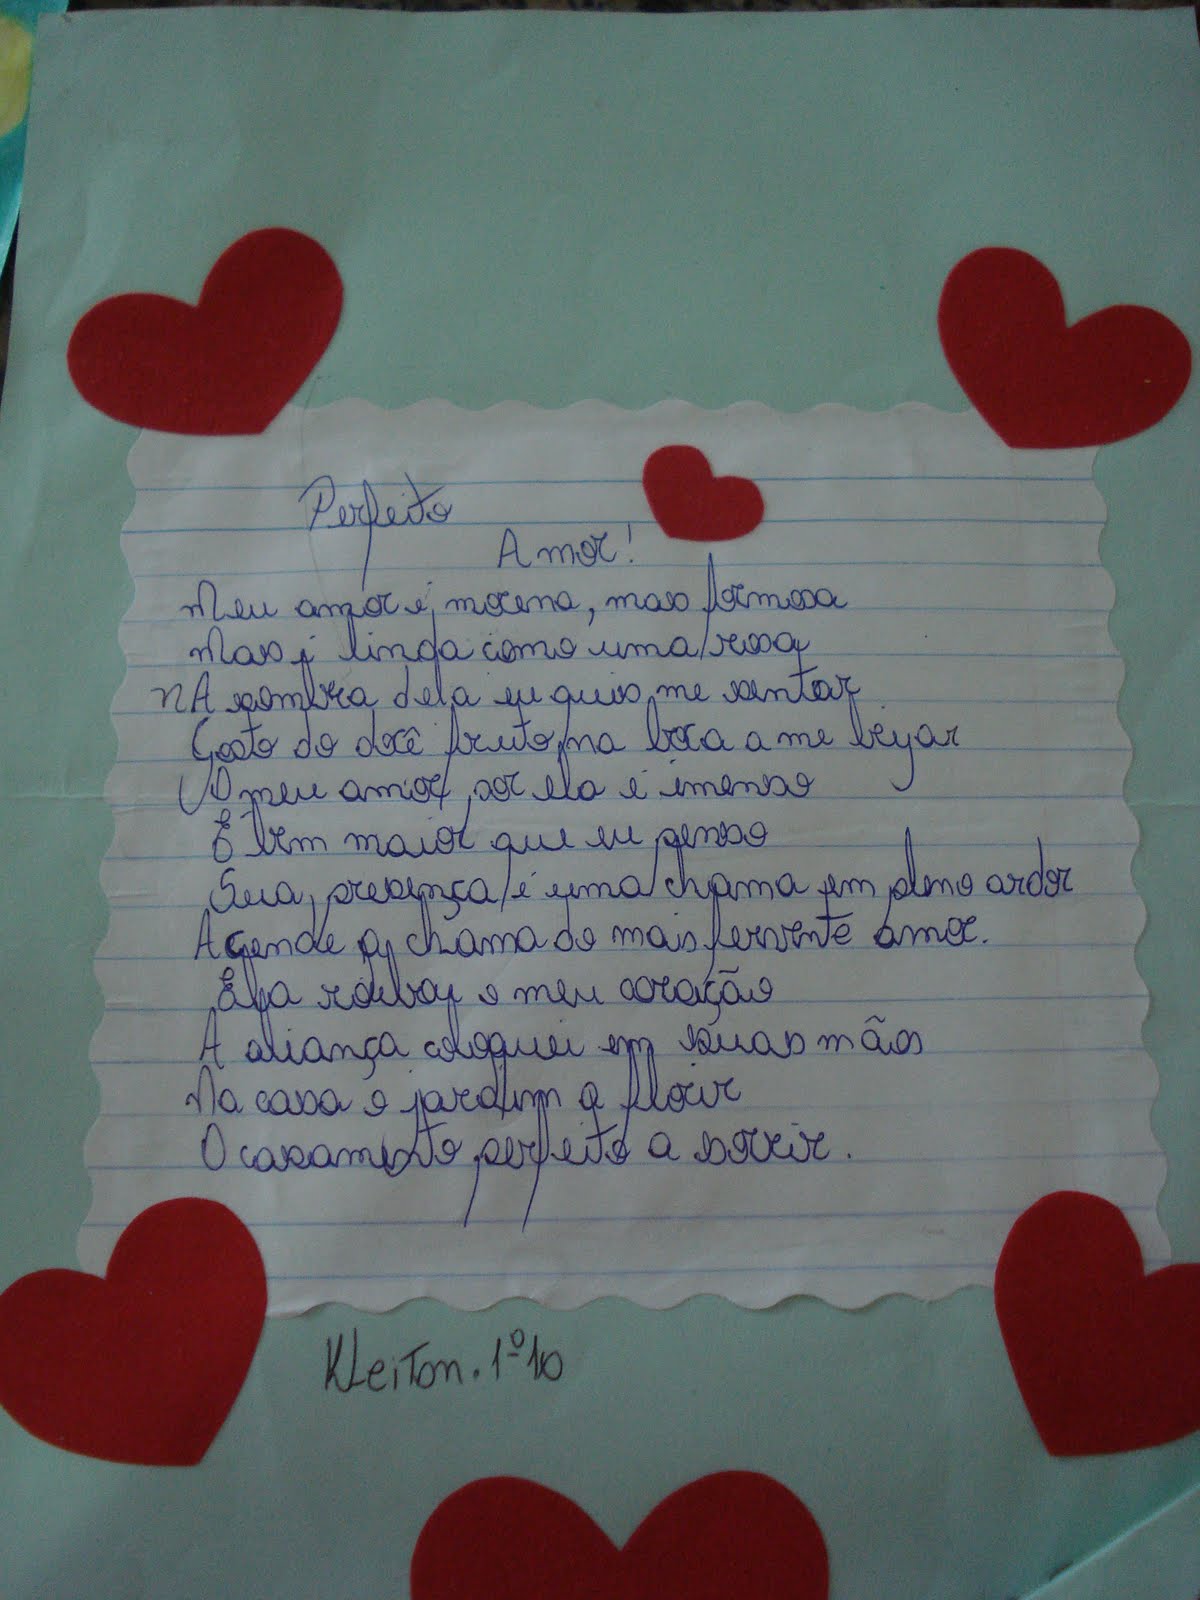 Perfeito
Amor!
Meu amor é morena, mas formosa
Mas é linda como uma rosa
NA sombra dela eu quis me sentar
Gosto do docê fruto na boca a me beijar
O meu amor por ela é imenso
É bem maior que eu penso
Sua presença é uma chama em pleno ardor
Acende a chama do mais fervente amor.
Ela roubou o meu coração
A aliança coloquei em suas mãos
Na casa o jardim a florir
O casamento perfeito a sorrir.
Kleiton. 1º10